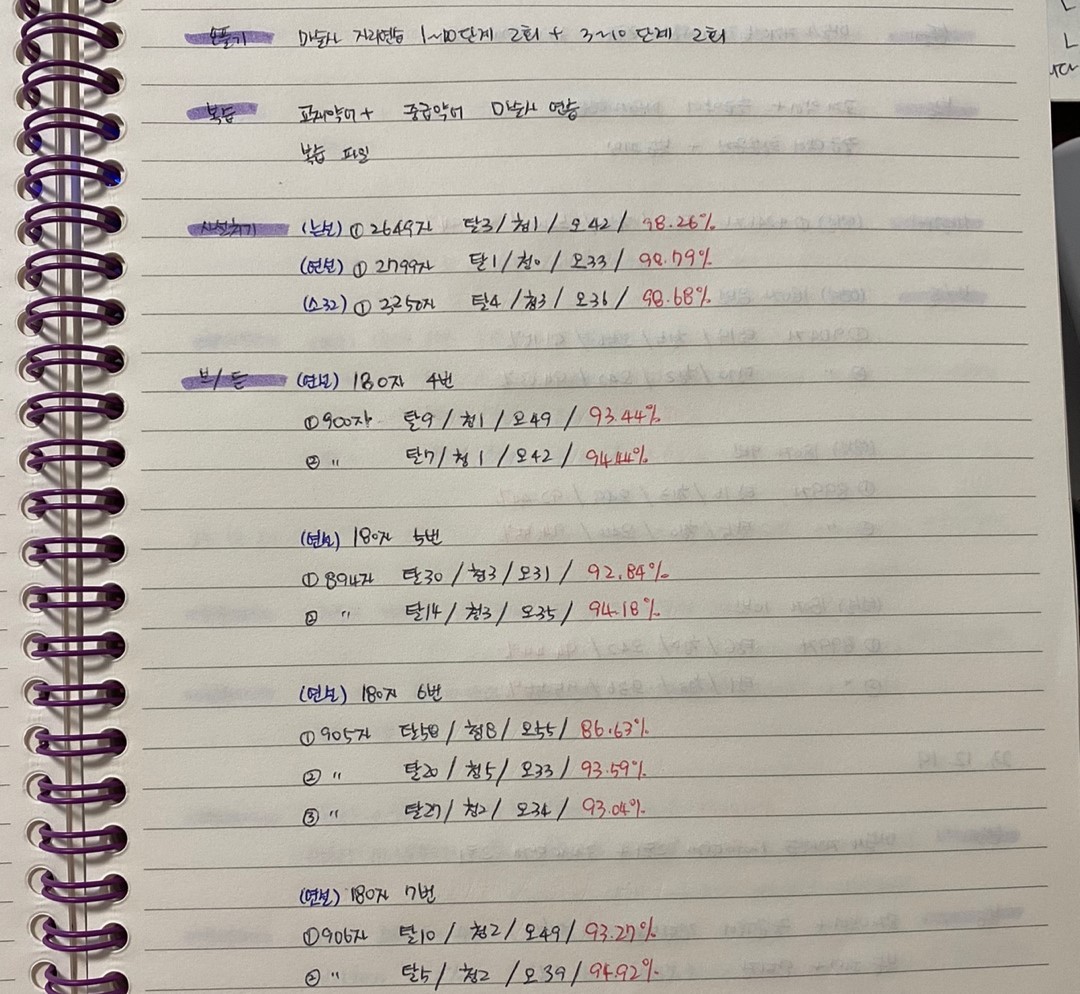 손풀기 마술사 자리연습 1~10단계 2회 + 3~10단계 2회
복습 교재약어 + 중급약어 마술사 연습
복습 파일
사설치기 (논보) ① 2649자 탈3 / 첨1 / 오42 / 98.26%
(연보) ① 2799자 탈1 / 첨0 / 오33 / 98.79%
(소32) ① 3250자 탈4 / 첨3 / 오36 / 98.68%
보/듣 (연보) 180자 4번
① 900자 탈9 / 첨1 / 오49 / 93.44%
② " 탈7 / 첨1 / 오42 / 94.44%
(연보) 180자 5번
① 894자 탈30 / 첨3 / 오31 / 92.84%
② " 탈14 / 첨3 / 오35 / 94.18%
(연보) 180자 6번
① 905자 탈58 / 첨8 / 오55 / 86.63%
② " 탈20 / 첨5 / 오33 / 93.59%
③ " 탈27 / 첨2 / 오34 / 93.04%
(연보) 180자 7번
① 906자 탈10 / 첨2 / 오49 / 93.27%
② " 탈5 / 첨2 / 오39 / 94.92%